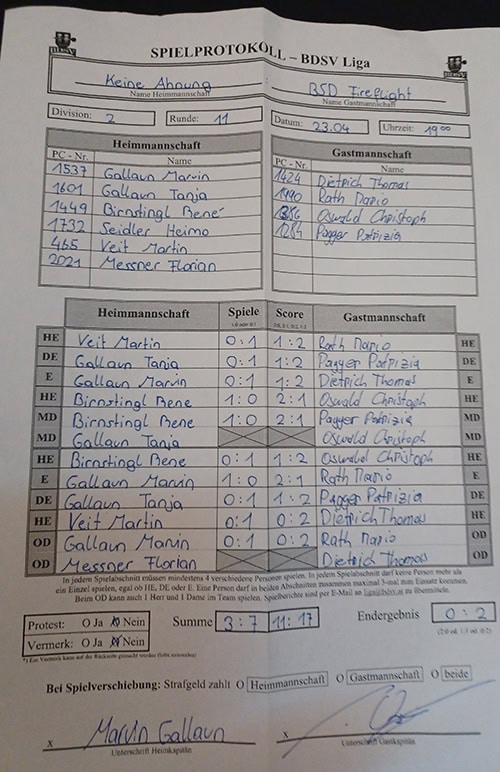 SPIELPROTOKOLL – BDSV Liga
Keine Ahnung BSD Fireflight
Name Heimmannschaft Name Gastmannschaft
Division: 2 Runde: 11 Datum: 23.04 Uhrzeit: 19 00
Heimmannschaft Gastmannschaft
PC - Nr. Name PC - Nr. Name
1537 Gallaun Marvin 1424 Dietrich Thomas
1601 Gallaun Tanja 1990 Rath Mario
1449 Birnstingl René Oswald Christoph
1732 Seidler Heimo 1284 Pagger Patrizia
465 Veit Martin
2021 Messner Florian
Heimmannschaft Spiele Score Gastmannschaft
HE Veit Martin 0:1 1:2 Rath Mario HE
DE Gallaun Tanja 0:1 1:2 Pagger Patrizia DE
E Gallaun Marvin 0:1 1:2 Dietrich Thomas E
HE Birnstingl Rene 1:0 2:1 Oswald Christoph HE
MD Birnstingl Rene 1:0 2:1 Pagger Patrizia MD
MD Gallaun Tanja Oswald Christoph MD
HE Birnstingl Rene 0:1 1:2 Oswald Christoph HE
E Gallaun Marvin 1:0 2:1 Rath Mario E
DE Gallaun Tanja 0:1 1:2 Pagger Patrizia DE
HE Veit Martin 0:1 0:2 Dietrich Thomas HE
OD Gallaun Marvin 0:1 0:2 Rath Mario OD
OD Messner Florian Dietrich Thomas OD
In jedem Spielabschnitt müssen mindestens 4 verschiedene Personen spielen. In jedem Spielabschnitt darf keine Person mehr als
ein Einzel spielen, egal ob HE, DE oder E. Eine Person darf in beiden Abschnitten zusammen maximal 3-mal zum Einsatz kommen.
Beim OD kann auch 1 Herr und 1 Dame im Team spielen. Spielberichte sind per E-Mail an liga@bdsv.at zu übermitteln.
Protest: O Ja O Nein Summe 3:7 11:17 Endergebnis 0:2
Vermerk: O Ja O Nein
Bei Spielverschiebung: Strafgeld zahlt O Heimmannschaft O Gastmannschaft O beide
x Marvin Gallaun x
Unterschrift Heimkapitän Unterschrift Gastkapitän